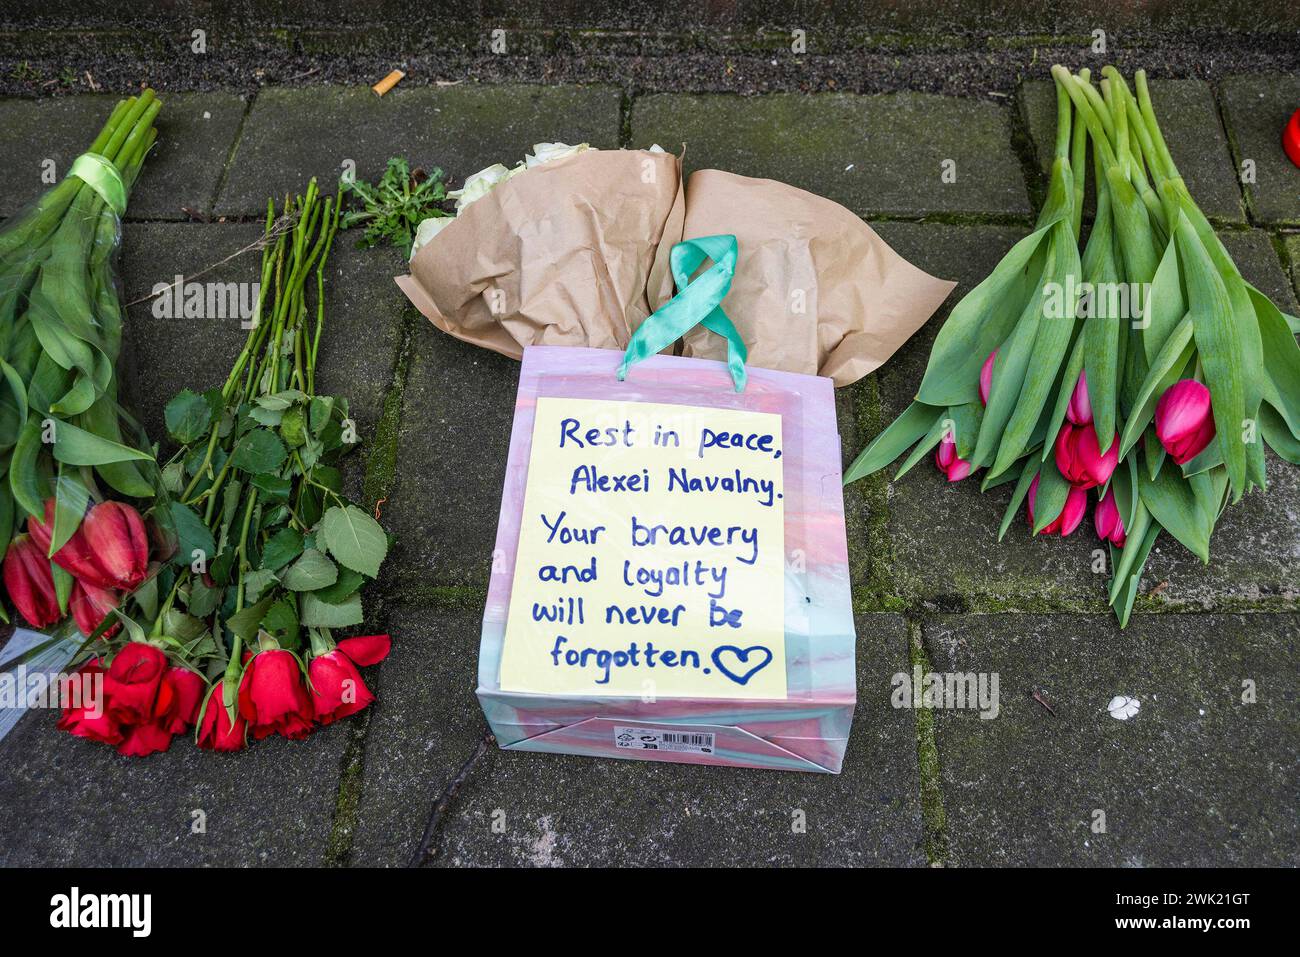 Rest in peace,
Alexei Navalny.
Your bravery
and loyalty
will never be
forgotten.
alamy
alamy
Image ID: 2WK21GT
www.alamy.com